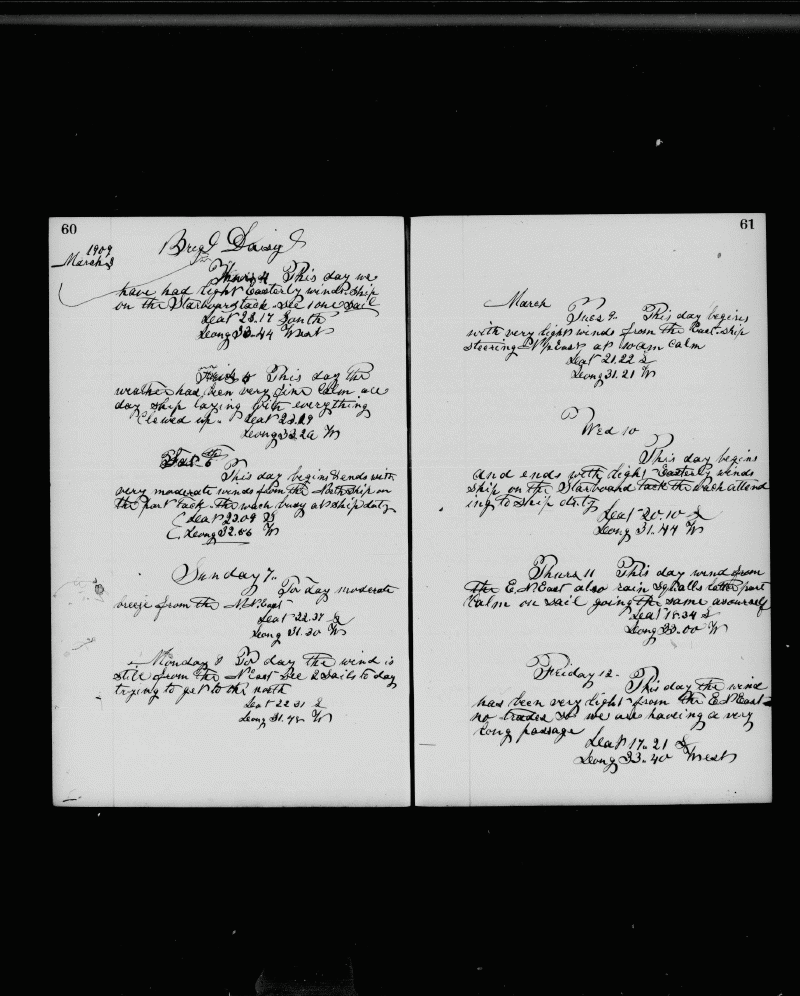 60
1909
March
Brig Daisy
Thurs 4 This day we
have had light Easterly winds Ship
on the Starboard tack. See 1 one Sail
Leat 23.17 South
Leong 33.44 West
Frid 5 This day the
weather has been very fine Calm all
day Ship laying with everything
Clewed up. Leat 23.29
Leong 33.20 W
Sat 6th
This day begins & ends with
very moderate winds from the North ship on
the port tack. the wach busy at ship duty
Leat 23.09 S
Leong 32.56 W
Sunday 7.
To day moderate
breeze from the N.N.East
Leat 22.37 S
Leong 31.30 W
Monday 8 To day the wind is
still from the N East See 2 Sails to day
trying to get to the north
Leat 22 31 S
Leong 31.48 W
61
March
Tues 9. This day begins
with very light winds from the East. ship
steering N/East at 10 am Calm
Leat 21.22 S
Leong 31.21 W
Wed 10
This day begins
and ends with light Easterly winds
Ship on the Starboard tack the Wach attend
ing to Ship duty
Leat 20.10 S
Leong 31.44 W
Thurs 11 This day wind from
the E.N.East also rain Squalls latter part
Calm on sail going the same as ourself
Leat 18.34 S
Leong 33.00 W
Friday 12.
This day the wind
has been very light from the E.N.East
no trades so we are having a very
long passage
Leat 17.21 S
Leong 33.40 West